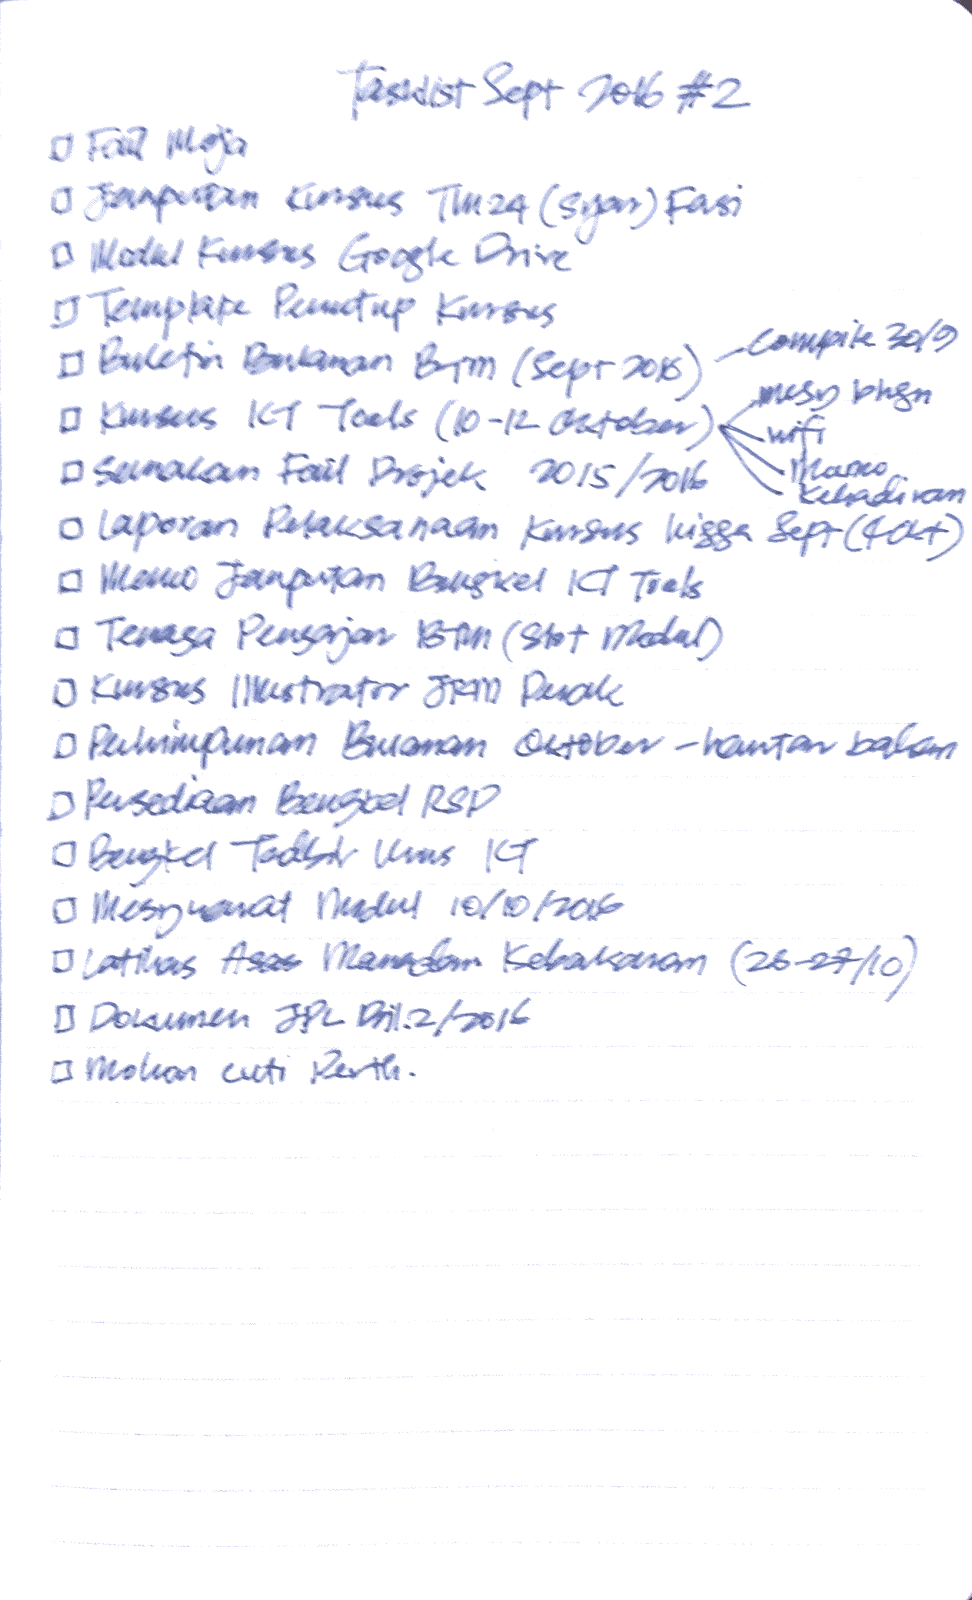 Tasklist Sept 2016 #2
Fail Meja
Jemputan Kursus TM24 (Syar) Fasi
Modul Kursus Google Drive
Template Penutup Kursus
Buletin Bulanan BTM (Sept 2016) - Compile 30/9
Kursus ICT Tools (10-12 Oktober)
mesy bhgn
wifi
Memo
Kehadiran
Semakan Fail Projek 2015/2016
Laporan Pelaksanaan Kursus hingga Sept (4 Okt)
Memo Jemputan Bengkel ICT Tools
Tenaga Pengajar BTM (Slot Modul)
Kursus Illustrator JPM Perak
Perhimpunan Bulanan Oktober - hantar bahan
Persediaan Bengkel RSP
Bengkel Tadbir Urus ICT
Mesyuarat Modul 10/10/2016
Latihas Asas Memadam Kebakaran (26-27/10)
Dokumen JPL Bil.2/2016
Mohon cuti Perth.